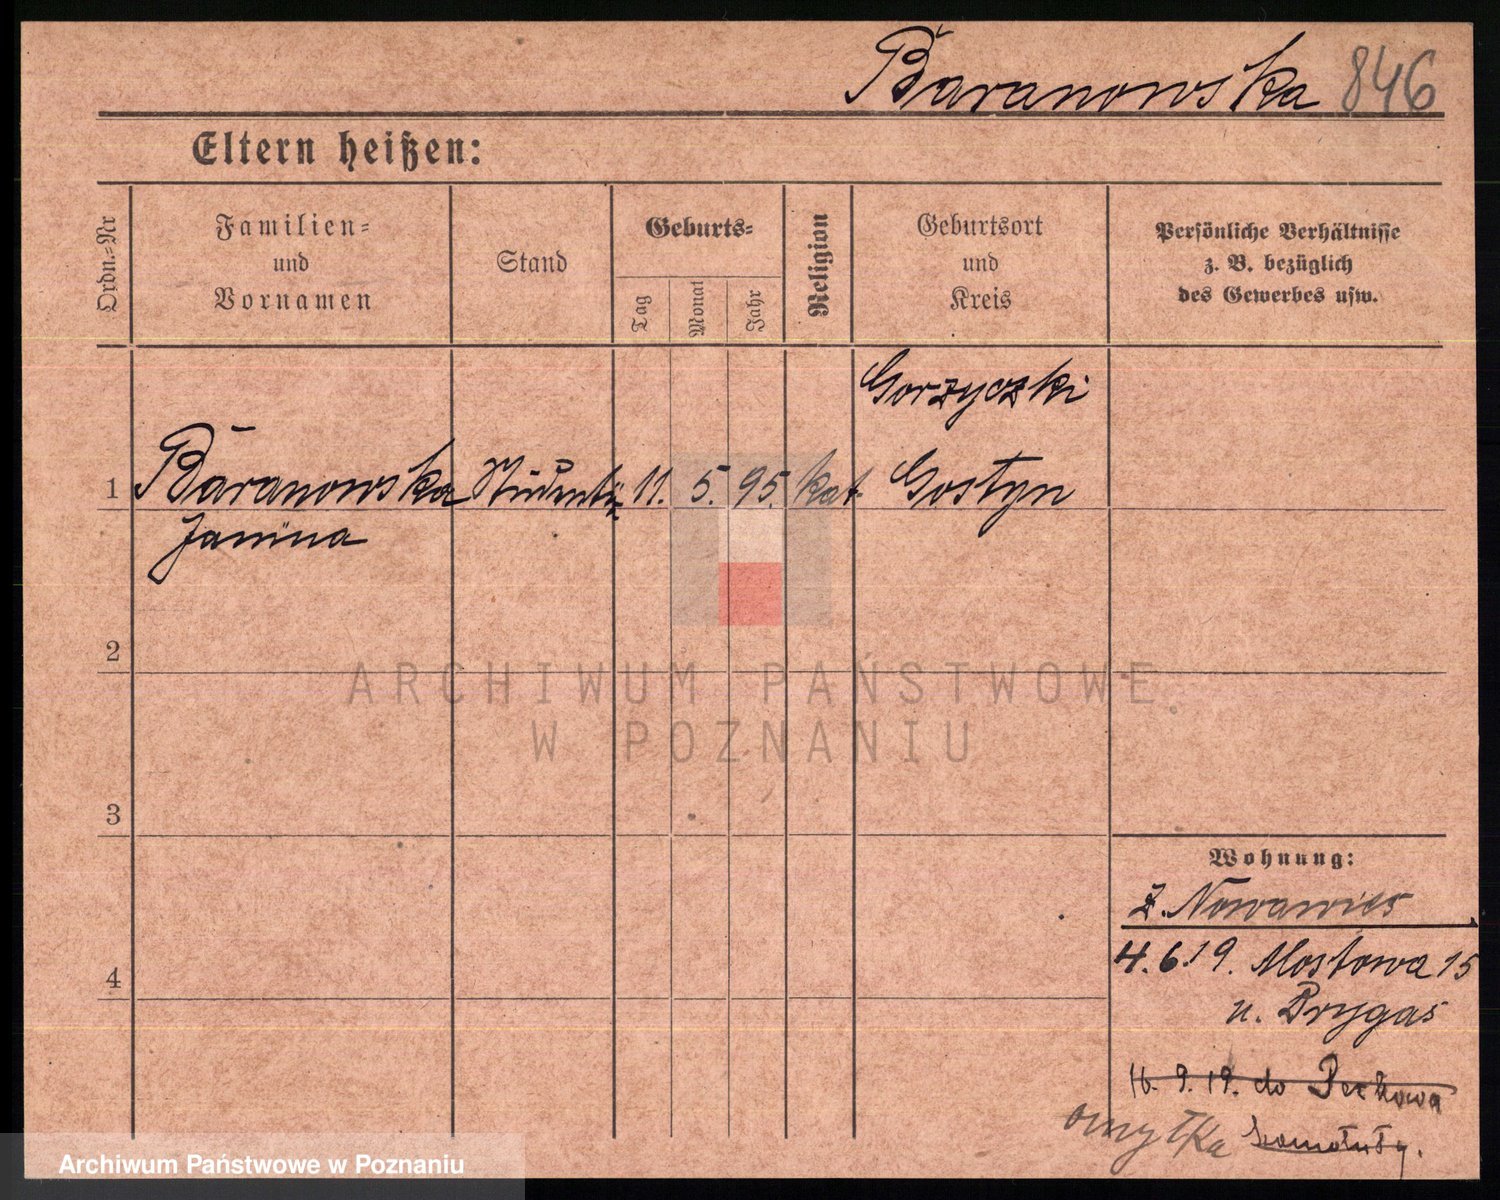 Baranowska 846
Eltern heißen:
Ordn.=Nr
Familien=
und
Vornamen
Stand
Geburts=
Tag
Monat
Jahr
Religion
Geburtsort
und
Kreis
Persönliche Verhältnisse
z. B. bezüglich
des Gewerbes usw.
Gorzyczki
1 Baranowska 11. 5. 95. kat. Gostyn
Janina
2
ARCHIWUM PAŃSTWOWE
W POZNANIU
3
Wohnung:
z. Nowawies
4.6.19. Mostowa 15
4
u. Prygas
16. 9. 19. do
omyłka Szamotuły.
Archiwum Państwowe w Poznaniu